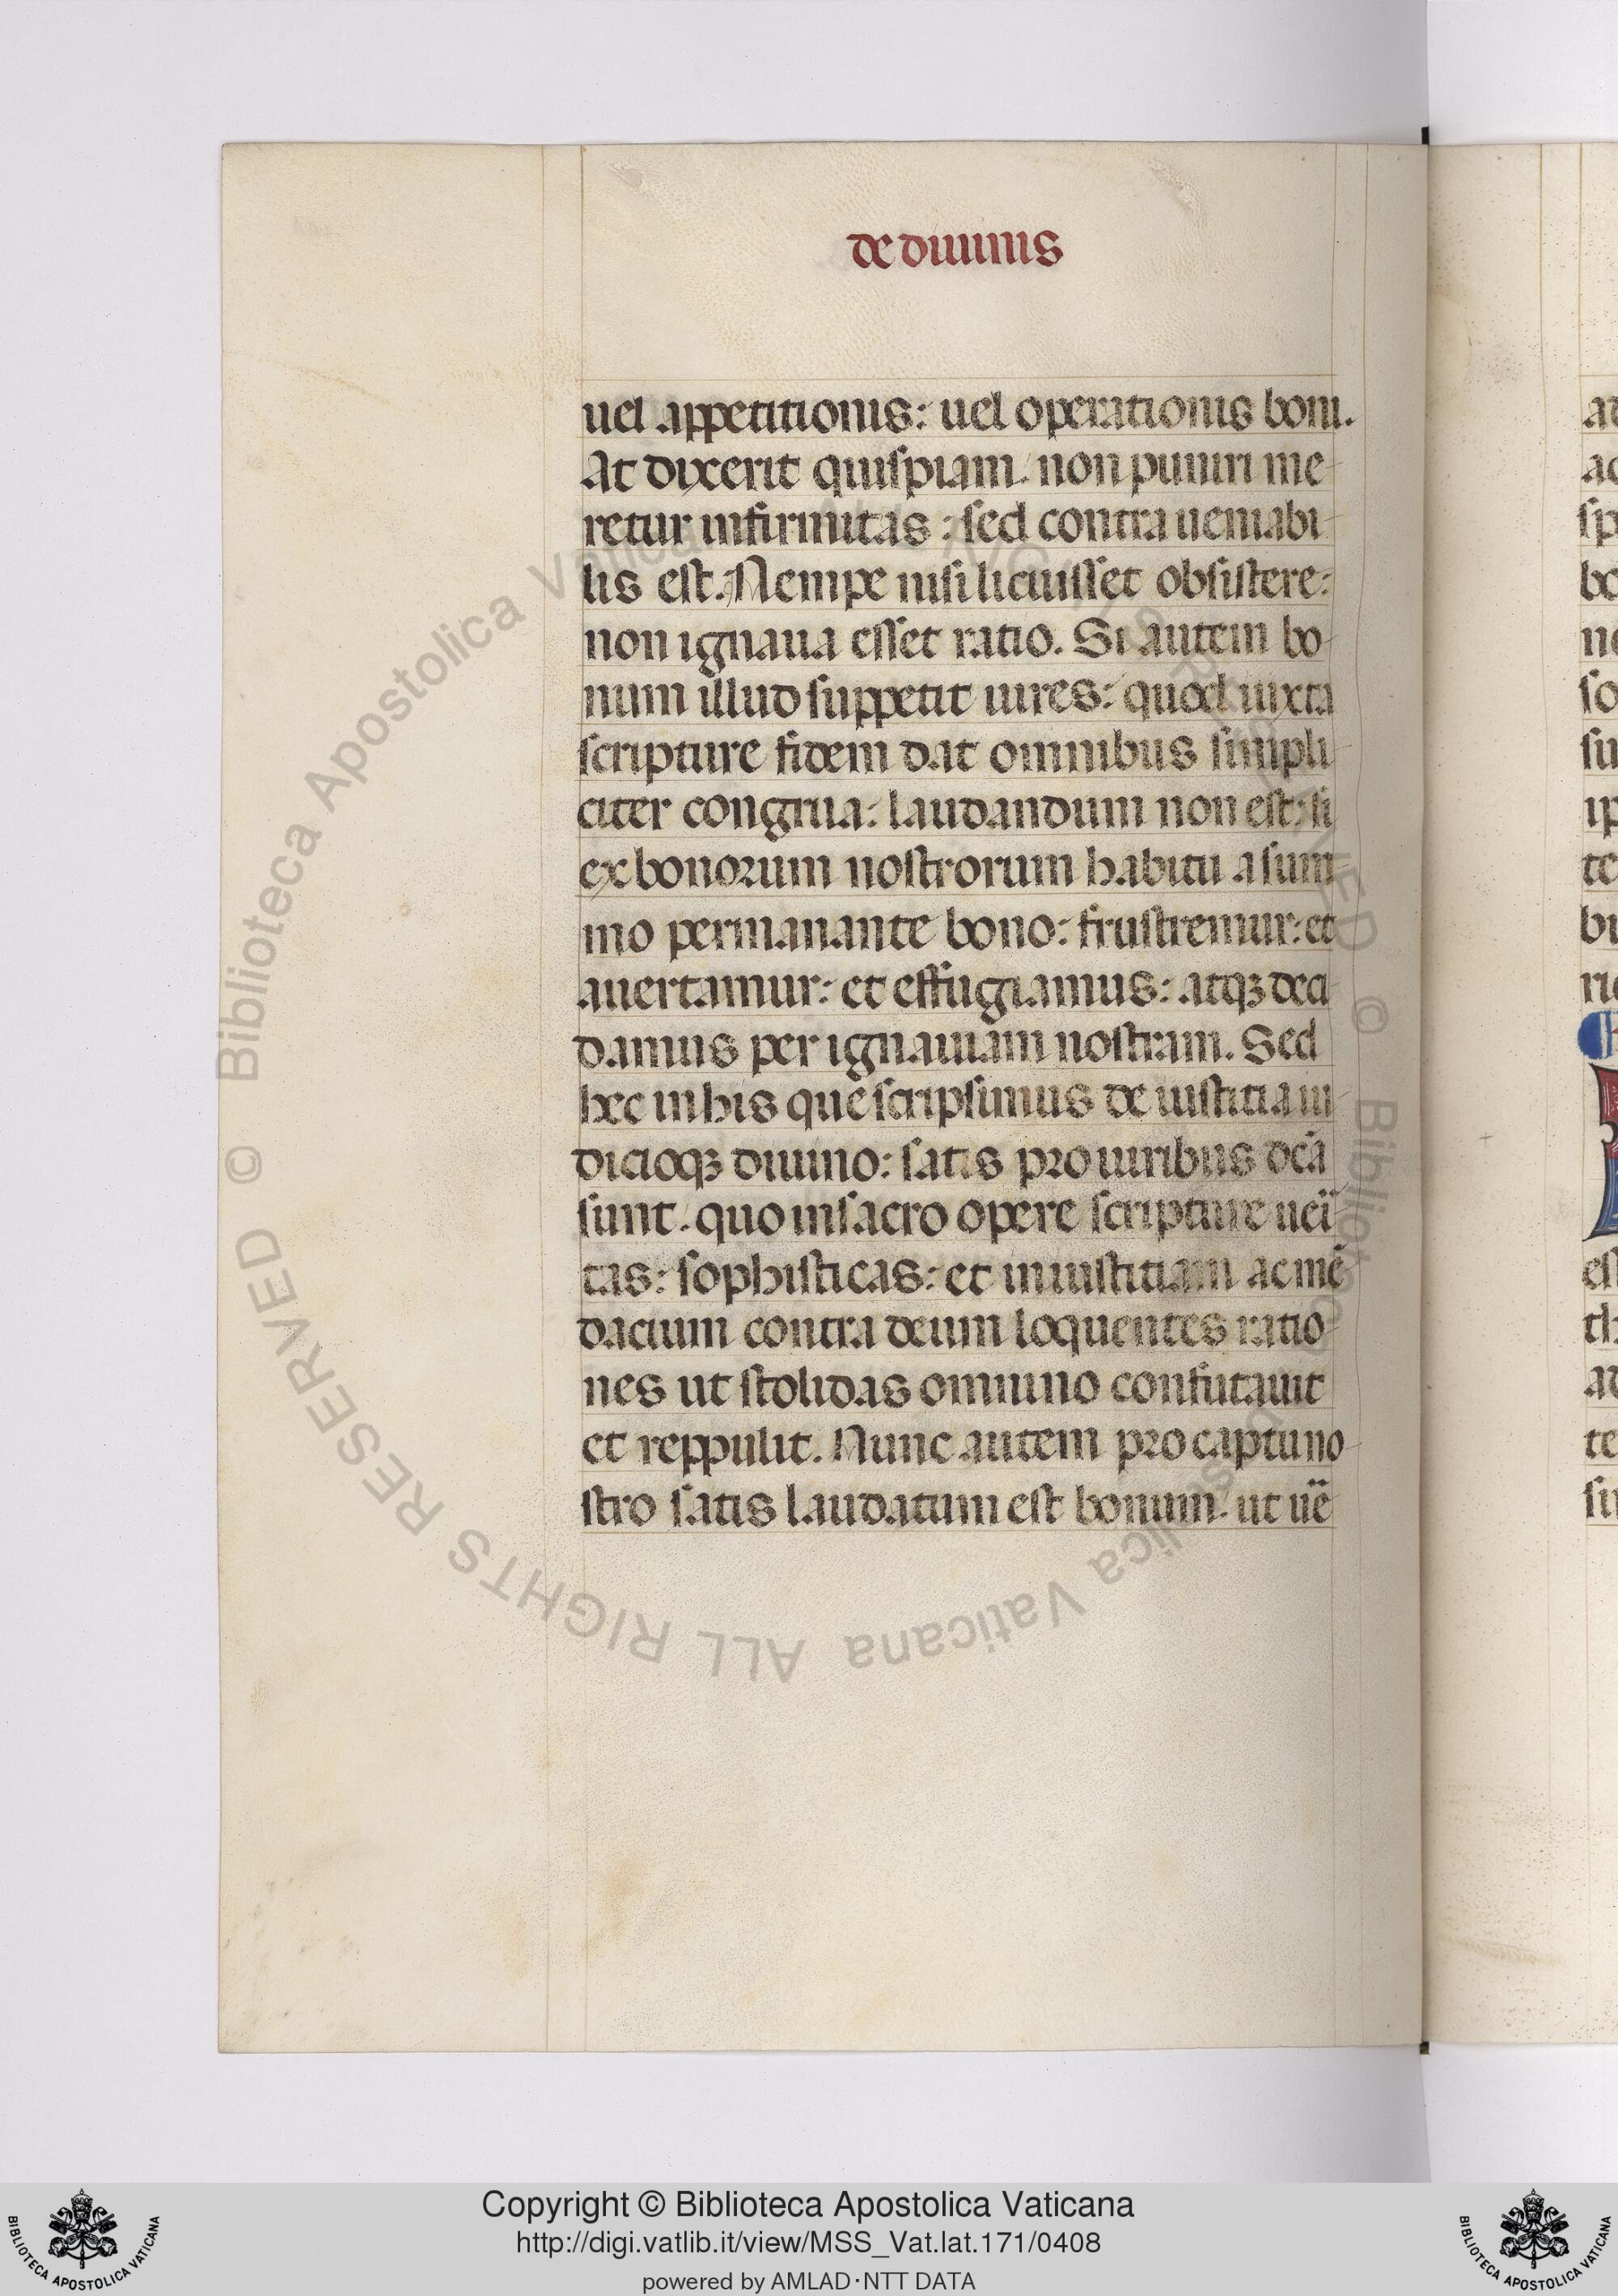 de diuinis
uel appetitionis: uel operationis boni.
At dixerit quispiam. non puniri me
retur infirmitas: sed contra ueniabi
lis est. Nempe nisi licuisset obsistere:
non ignaua esset ratio. Si autem bo
num illud suppetit uires: quod iuxta
scripture fidem dat omnibus simpli
citer congrua: laudandum non est: si
ex bonorum nostrorum habitu a sum
mo permanante bono: frustremur: et
auertamur: et effugiamus: atqꝫ deci
damus per ignauiam nostram. Sed
hec in his que scripsimus de iustitia iu
dicioqꝫ diuino: satis pro uiribus dc̄a
sunt. quo in sacro opere scripture uei
tas: sophisticas: et iniustitiam ac mē
dacium contra deum loquentes ratio
nes ut stolidas omnino confutauit
et reppulit. Nunc autem pro captu no
stro satis laudatum est bonum. ut uē
Copyright © Biblioteca Apostolica Vaticana
http://digi.vatlib.it/view/MSS_Vat.lat.171/0408
powered by AMLAD·NTT DATA
BIBLIOTECA APOSTOLICA VATICANA
BIBLIOTECA APOSTOLICA VATICANA
© Biblioteca Apostolica Vaticana ALL RIGHTS RESERVED